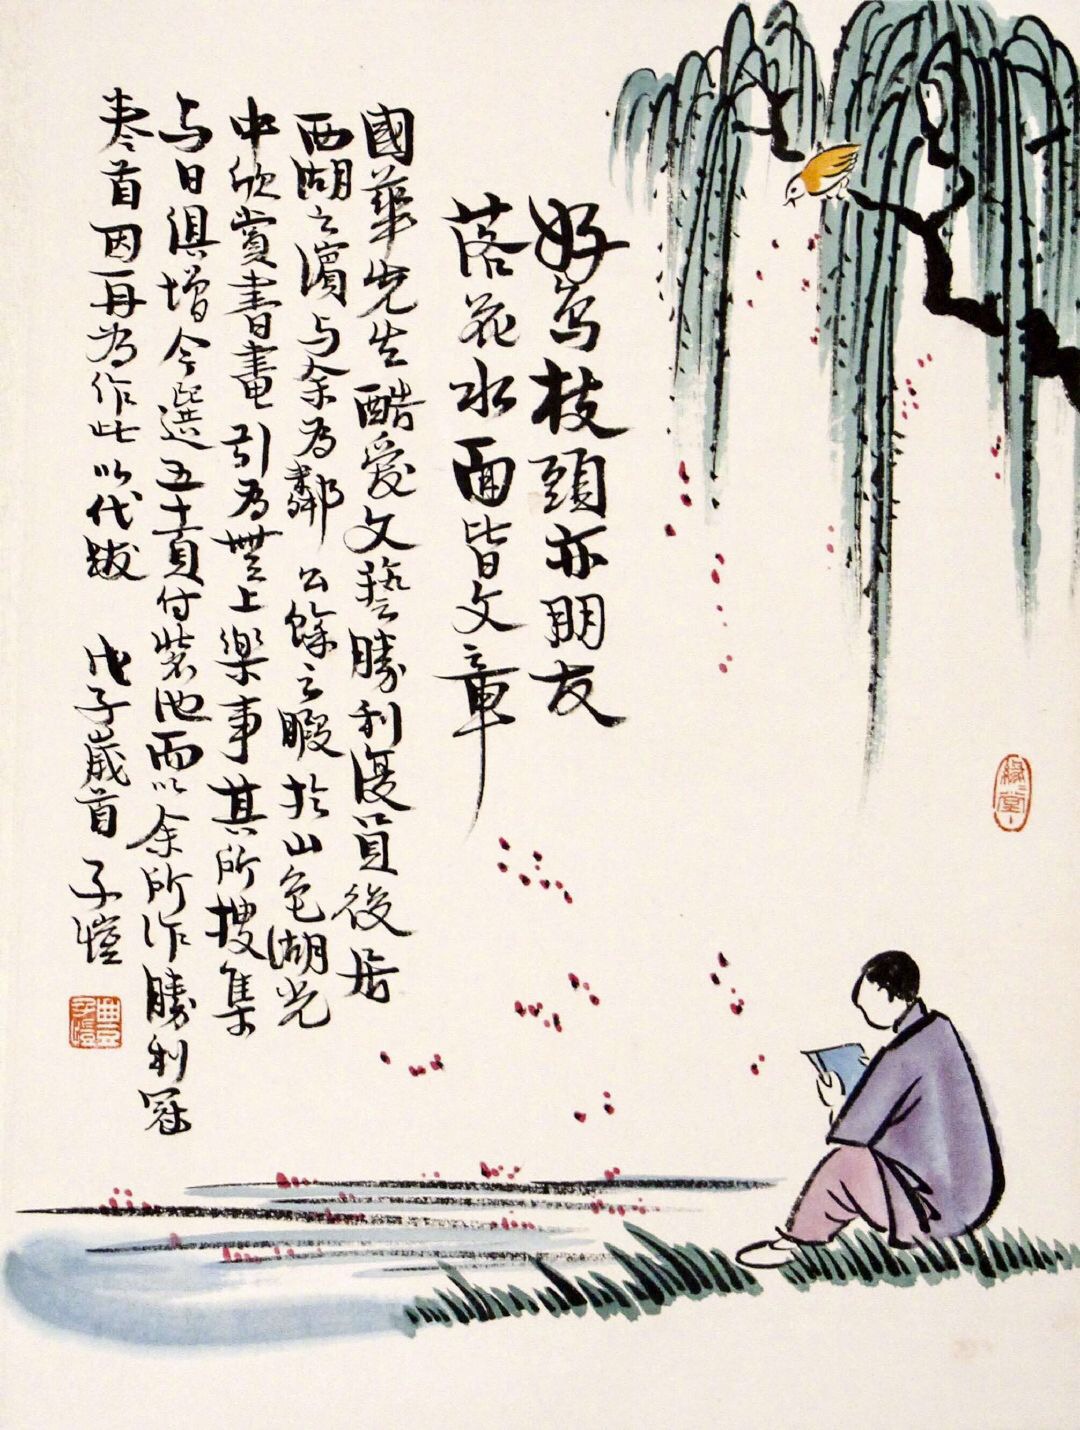 好鳥枝頭亦朋友
落花水面皆文章
國華先生酷愛文藝勝利復員後居
西湖之濱与余為鄰 公餘之暇於山色湖光
中欣賞書畫引為無上樂事其所搜集
与日俱增今選五十頁付裝池而以余所作勝利冠
卷首因再為作此以代跋 戊子歲首 子愷
豐子愷
緣緣堂